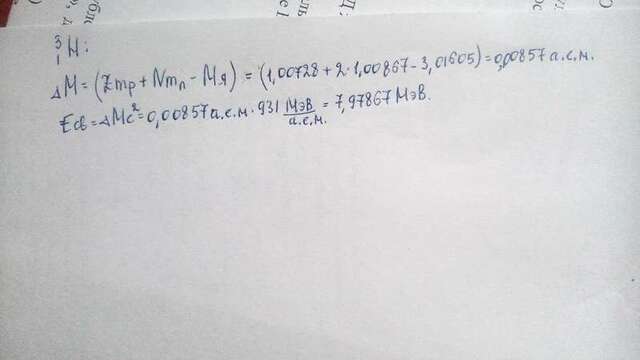 ³₁H:
ΔM = (Zmp + Nmn - Mя) = (1,00728 + 2·1,00867 - 3,01605) = 0,00857 а.е.м.
Eсв = ΔMc² = 0,00857 а.е.м. · 931 МэВ/а.е.м. = 7,97867 МэВ.